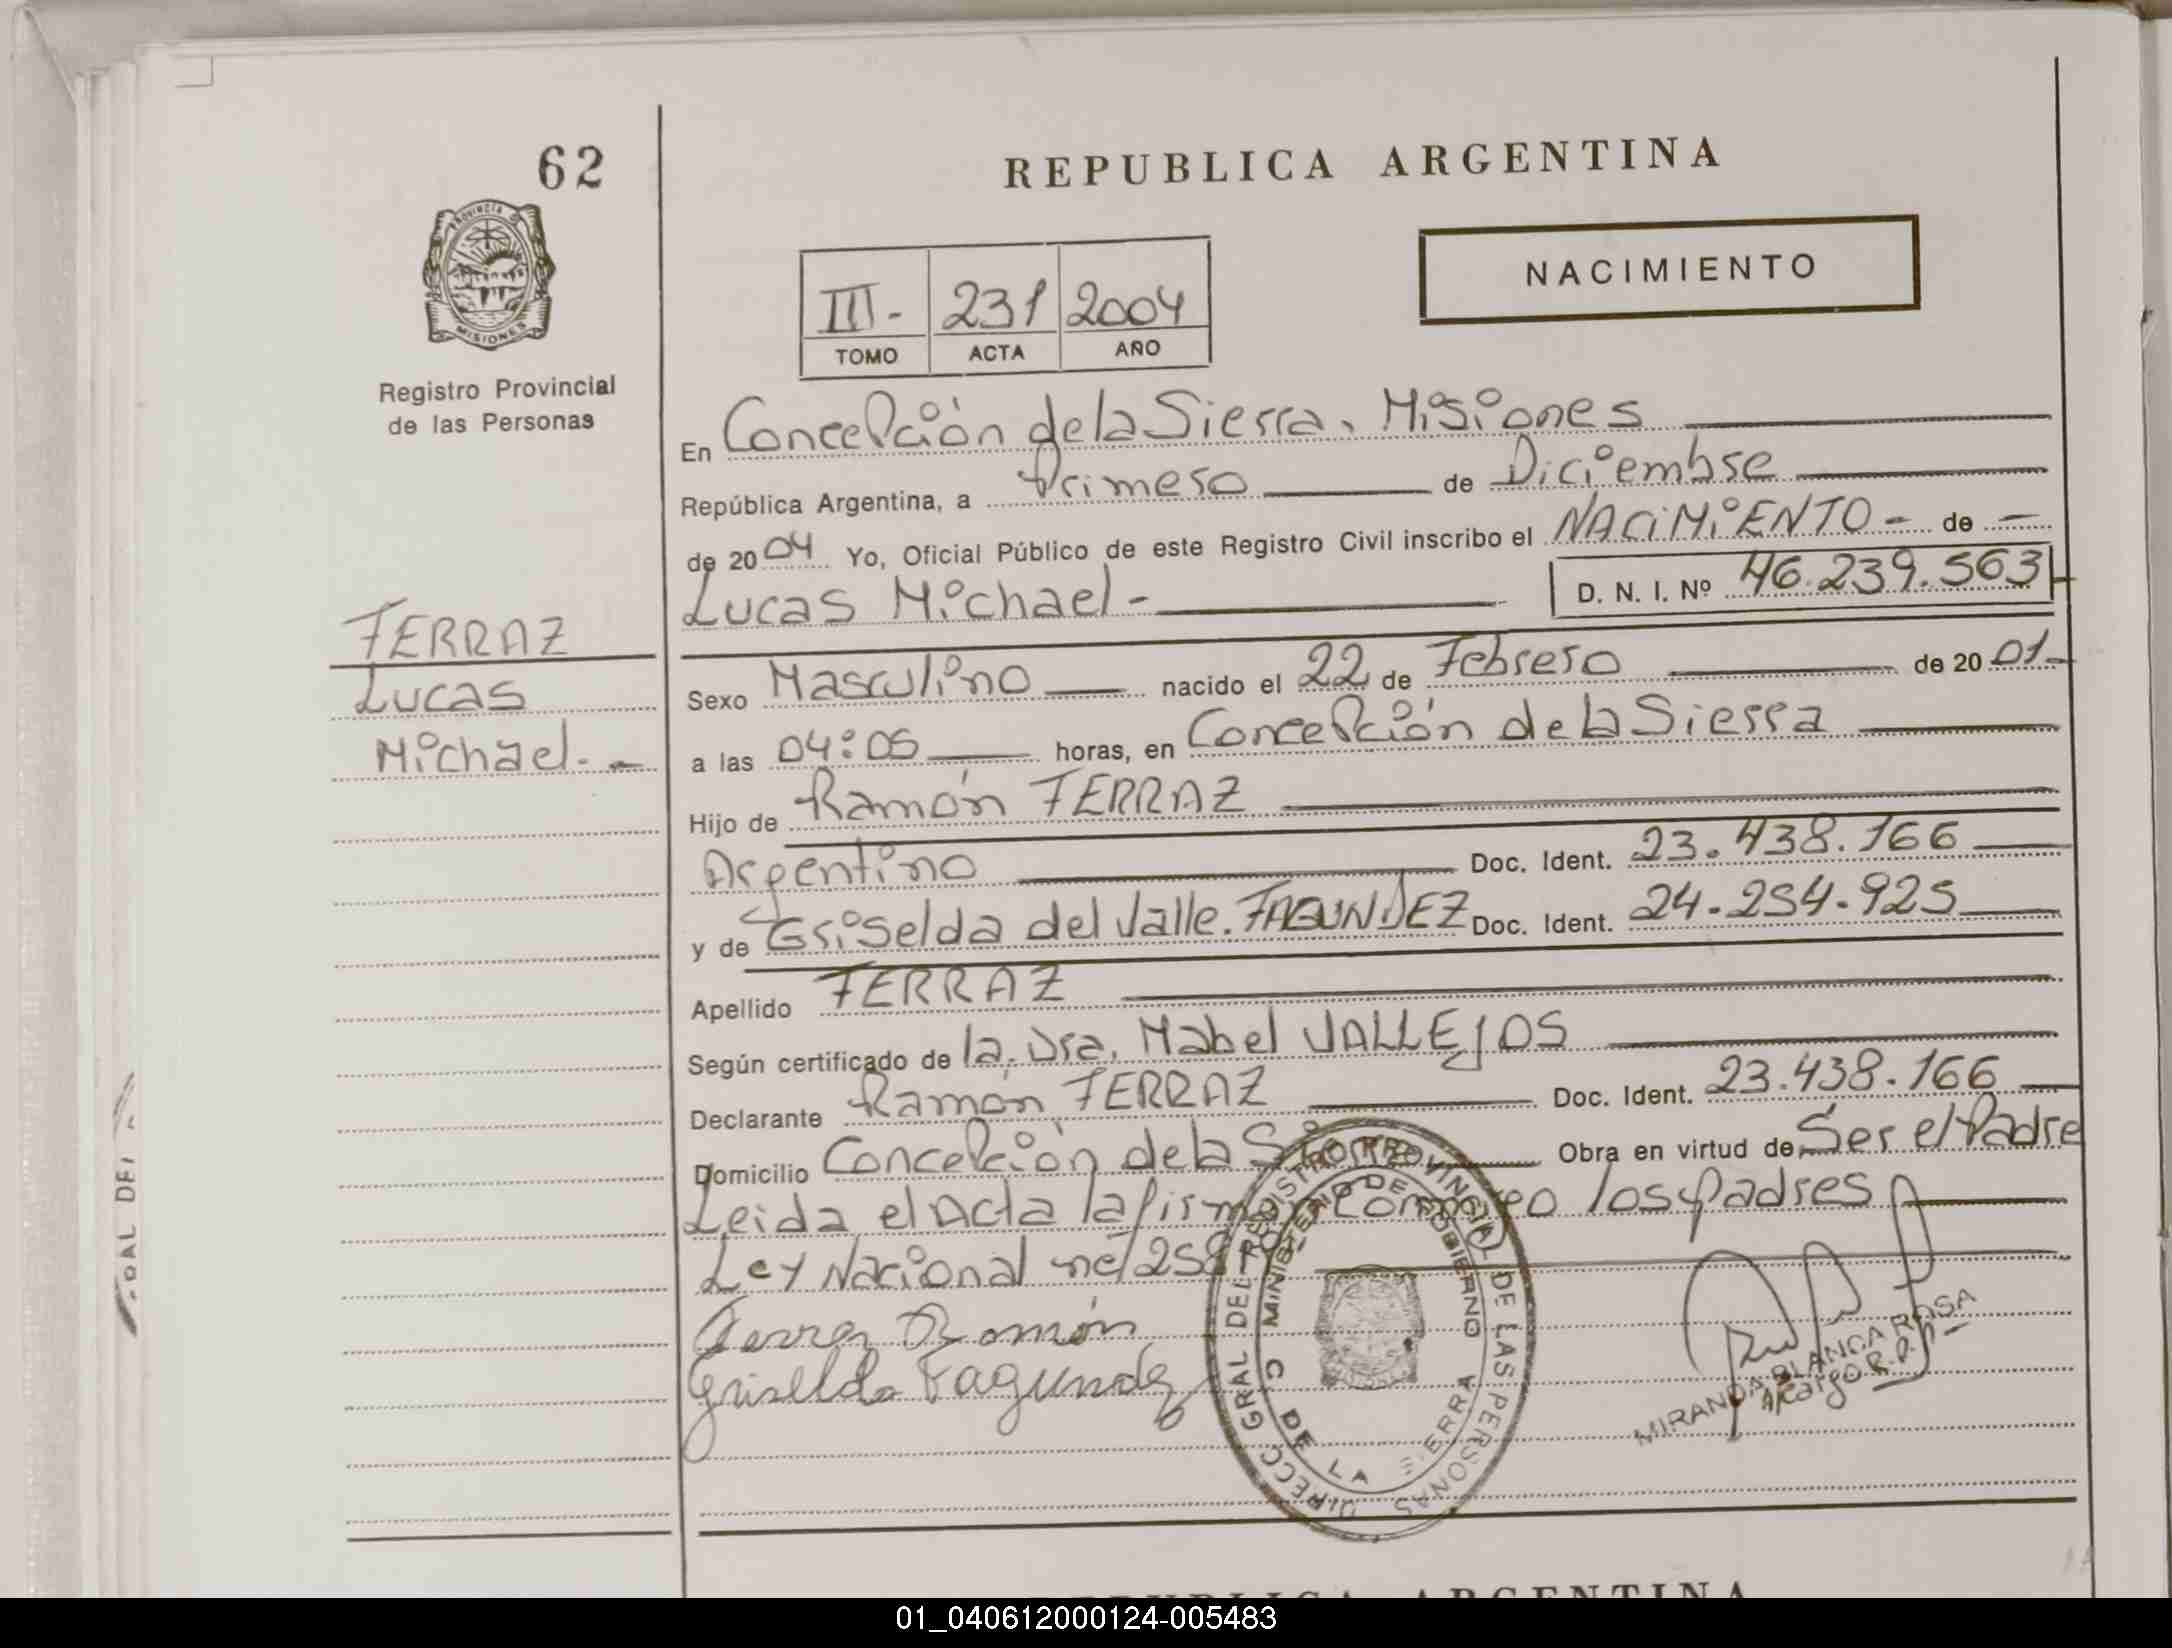 62
REPUBLICA ARGENTINA
PROVINCIA DE
MISIONES
NACIMIENTO
III- 231 2004
TOMO ACTA AÑO
Registro Provincial
de las Personas
En Concepción de la Sierra, Misiones
República Argentina, a Primero de Diciembre
de 2004 Yo, Oficial Público de este Registro Civil inscribo el NACIMIENTO - de -
Lucas Michael - D. N. I. Nº 46.239.563
FERRAZ
Lucas
Michael.-
Sexo Masculino nacido el 22 de Febrero de 2001-
a las 04:05 horas, en Concepción de la Sierra
Hijo de Ramón FERRAZ
Argentino Doc. Ident. 23.438.166
y de Griselda del Valle. FAGUNDEZ Doc. Ident. 24.254.925
Apellido FERRAZ
Según certificado de la. Dra. Mabel VALLEJOS
Declarante Ramón FERRAZ Doc. Ident. 23.438.166
Domicilio Concepción de la S Obra en virtud de Ser el Padre
Leida el Acta la firman conmigo los padres
Ley Nacional nº
Ferraz Ramón
Griselda Fagundez
DIRECC GRAL DEL REGISTRO PROVINCIAL DE LAS PERSONAS
MINISTERIO DE GOBIERNO
C DE LA SIERRA
MIRANDA BLANCA ROSA
A/cargo R.P.
REPUBLICA ARGENTINA
01_040612000124-005483